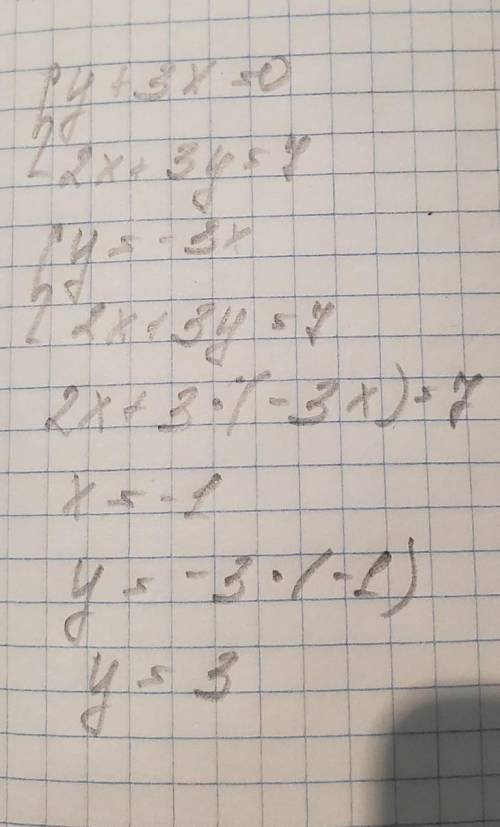 { y + 3x = 0
2x + 3y = 7
{ y = -3x
2x + 3y = 7
2x + 3 · (-3x) = 7
x = -1
y = -3 · (-1)
y = 3